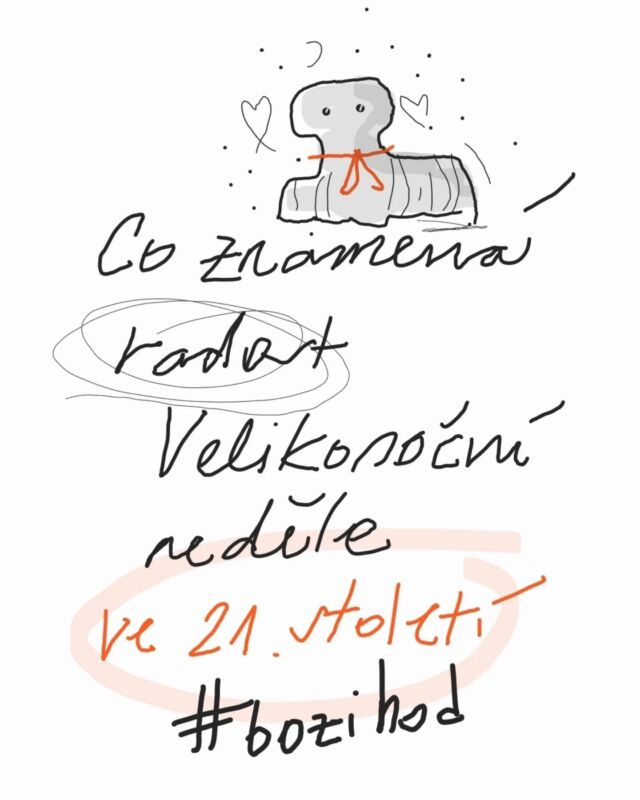 Co znamená
radost
Velikonoční
neděle
ve 21. století
#bozihod